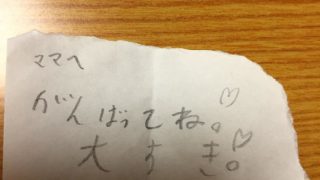 ママへ
がんばってね。♡
大すき。♡